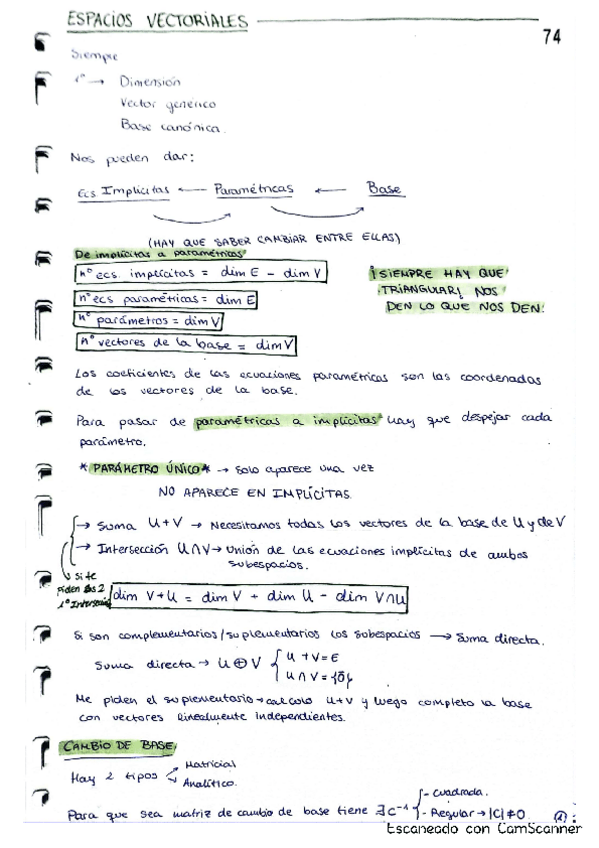 ESPACIOS VECTORIALES
74
Siempre
1º → Dimensión
Vector genérico
Base canónica.
Nos pueden dar:
Ecs Implícitas ← Paramétricas ← Base
(HAY QUE SABER CAMBIAR ENTRE ELLAS)
De implícitas a paramétricas
nº ecs. implícitas = dim E - dim V
nº ecs paramétricas = dim E
nº parámetros = dim V
nº vectores de la base = dim V
¡SIEMPRE HAY QUE
TRIANGULAR! NOS
DEN LO QUE NOS DEN!
Los coeficientes de las ecuaciones paramétricas son las coordenadas
de los vectores de la base.
Para pasar de paramétricas a implícitas hay que despejar cada
parámetro.
* PARÁMETRO ÚNICO * → Solo aparece una vez
NO APARECE EN IMPLÍCITAS
→ Suma U+V → Necesitamos todas los vectores de la base de U y de V
→ Intersección U∩V → Unión de las ecuaciones implícitas de ambos
subespacios.
Si te
piden las 2
1º Intersección
dim V+U = dim V + dim U - dim V∩U
Si son complementarios/suplementarios los subespacios → Suma directa.
Suma directa → U⊕V { U+V=E
U∩V={0̄}
Me piden el suplementario → calculo U+V y luego completo la base
con vectores linealmente independientes.
CAMBIO DE BASE
Hay 2 tipos < Matricial
Analítico.
Para que sea matriz de cambio de base tiene ∃C⁻¹ { - Cuadrada.
- Regular → |C|≠0
Escaneado con CamScanner